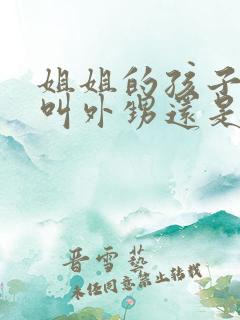 姐姐的孩子
叫外甥還是
晋雪藝
未经同意禁止转载